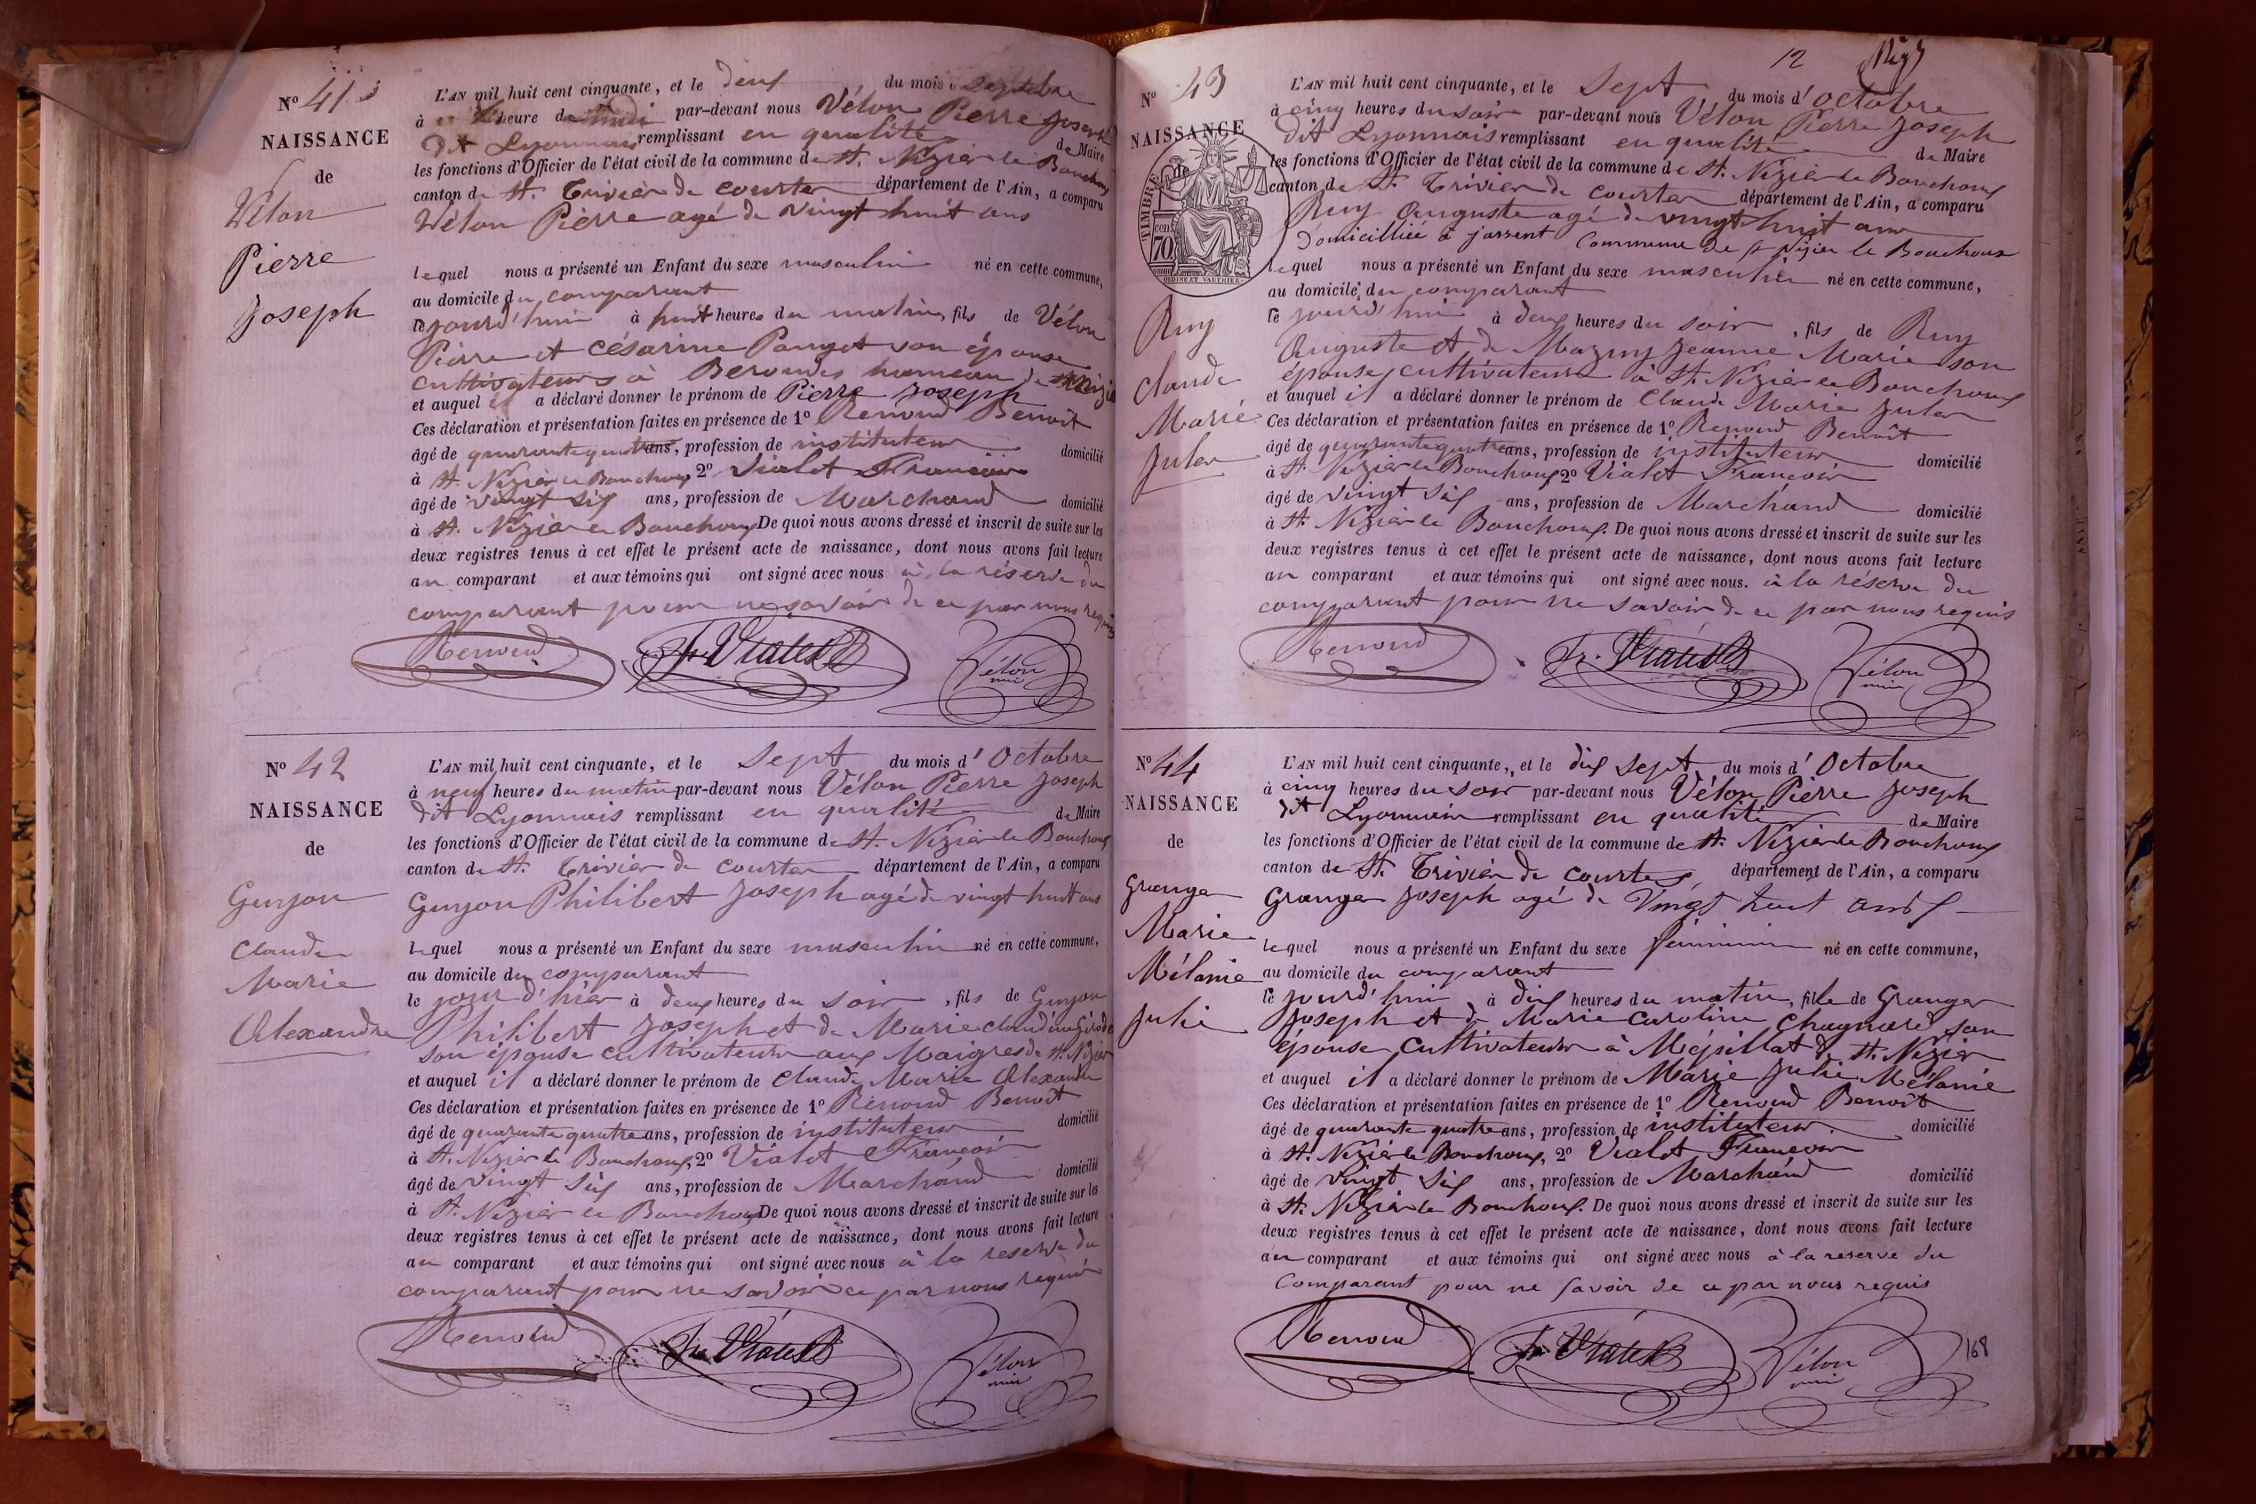 N° 41
NAISSANCE
de
Vélon
Pierre
Joseph
L'AN mil huit cent cinquante, et le deux du mois
à heure du par-devant nous Vélon Pierre Joseph
dit Lyonnais remplissant en qualité de Maire
les fonctions d'Officier de l'état civil de la commune de St. Nizier le Bouchoux
canton de St. Trivier de courtes département de l'Ain, a comparu
Vélon Pierre agé de vingt huit ans
lequel nous a présenté un Enfant du sexe masculin né en cette commune,
au domicile du comparant
le jourd'hui à huit heures du matin, fils de Vélon
Pierre et Césarine Pauget son épouse
cultivateurs à hameau de St Nizier
et auquel il a déclaré donner le prénom de Pierre Joseph
Ces déclaration et présentation faites en présence de 1° Renoud Benoît
âgé de quarante quatre ans, profession de instituteur domicilié
à St. Nizier le Bouchoux 2° Vialet François
âgé de vingt six ans, profession de Marchand domicilié
à St. Nizier le Bouchoux De quoi nous avons dressé et inscrit de suite sur les
deux registres tenus à cet effet le présent acte de naissance, dont nous avons fait lecture
au comparant et aux témoins qui ont signé avec nous à la réserve du
comparant pour ne savoir de ce par nous requis
Renoud Fr. Vialet Vélon
N° 42
NAISSANCE
de
Guyon
Claude
Marie
Alexandre
L'AN mil huit cent cinquante, et le Sept du mois d'Octobre
à neuf heures du matin par-devant nous Vélon Pierre Joseph
dit Lyonnais remplissant en qualité de Maire
les fonctions d'Officier de l'état civil de la commune de St. Nizier le Bouchoux
canton de St. Trivier de courtes département de l'Ain, a comparu
Guyon Philibert Joseph agé de vingt huit ans
lequel nous a présenté un Enfant du sexe masculin né en cette commune,
au domicile du comparant
le jour d'hier à deux heures du soir, fils de Guyon
Philibert Joseph et de Marie claudine
son épouse cultivateurs aux Maigres de St. Nizier
et auquel il a déclaré donner le prénom de Claude Marie Alexandre
Ces déclaration et présentation faites en présence de 1° Renoud Benoît
âgé de quarante quatre ans, profession de instituteur domicilié
à St. Nizier le Bouchoux, 2° Vialet François
âgé de vingt six ans, profession de Marchand domicilié
à St. Nizier le Bouchoux De quoi nous avons dressé et inscrit de suite sur les
deux registres tenus à cet effet le présent acte de naissance, dont nous avons fait lecture
au comparant et aux témoins qui ont signé avec nous à la reserve du
comparant pour ne savoir ce par nous requis
Renoud Fr. Vialet Vélon
12
N° 43
NAISSANCE
de
TIMBRE
70
Ruy
Claude
Marie
Jules
L'AN mil huit cent cinquante, et le Sept du mois d'octobre
à cinq heures du soir par-devant nous Vélon Pierre Joseph
dit Lyonnais remplissant en qualité de Maire
les fonctions d'Officier de l'état civil de la commune de St. Nizier le Bouchoux
canton de St. Trivier de courtes département de l'Ain, a comparu
Ruy Auguste agé de vingt huit ans
Domicilliée à jassent Commune de St Nizier le Bouchoux
lequel nous a présenté un Enfant du sexe masculin né en cette commune,
au domicile du comparant
le jourd'hui à deux heures du soir, fils de Ruy
Auguste et de Mazuy Jeanne Marie son
épouse, cultivateurs à St. Nizier le Bouchoux
et auquel il a déclaré donner le prénom de Claude Marie Jules
Ces déclaration et présentation faites en présence de 1° Renoud Benoît
âgé de quarante quatre ans, profession de instituteur domicilié
à St. Nizier le Bouchoux 2° Vialet François
âgé de vingt six ans, profession de Marchand domicilié
à St. Nizier le Bouchoux. De quoi nous avons dressé et inscrit de suite sur les
deux registres tenus à cet effet le présent acte de naissance, dont nous avons fait lecture
au comparant et aux témoins qui ont signé avec nous. à la réserve du
comparant pour ne savoir de ce par nous requis
Renoud Fr. Vialet Vélon
N° 44
NAISSANCE
de
Granger
Marie
Mélanie
Julie
L'AN mil huit cent cinquante, et le dix sept du mois d'Octobre
à cinq heures du soir par-devant nous Vélon Pierre Joseph
dit Lyonnais remplissant en qualité de Maire
les fonctions d'Officier de l'état civil de la commune de St. Nizier le Bouchoux
canton de St. Trivier de courtes, département de l'Ain, a comparu
Granger Joseph agé de Vingt huit ans
lequel nous a présenté un Enfant du sexe féminin né en cette commune,
au domicile du comparant
le jourd'hui, à dix heures du matin, fille de Granger
Joseph et de Marie Caroline Chagnard son
épouse, Cultivateurs à Mépillat de St. Nizier
et auquel il a déclaré donner le prénom de Marie Julie Mélanie
Ces déclaration et présentation faites en présence de 1° Renoud Benoît
âgé de quarante quatre ans, profession de instituteur domicilié
à St. Nizier le Bouchoux, 2° Vialet François
âgé de vingt six ans, profession de Marchand domicilié
à St. Nizier le Bouchoux. De quoi nous avons dressé et inscrit de suite sur les
deux registres tenus à cet effet le présent acte de naissance, dont nous avons fait lecture
au comparant et aux témoins qui ont signé avec nous à la reserve du
Comparant pour ne savoir de ce par nous requis
Renoud Fr. Vialet Vélon
168